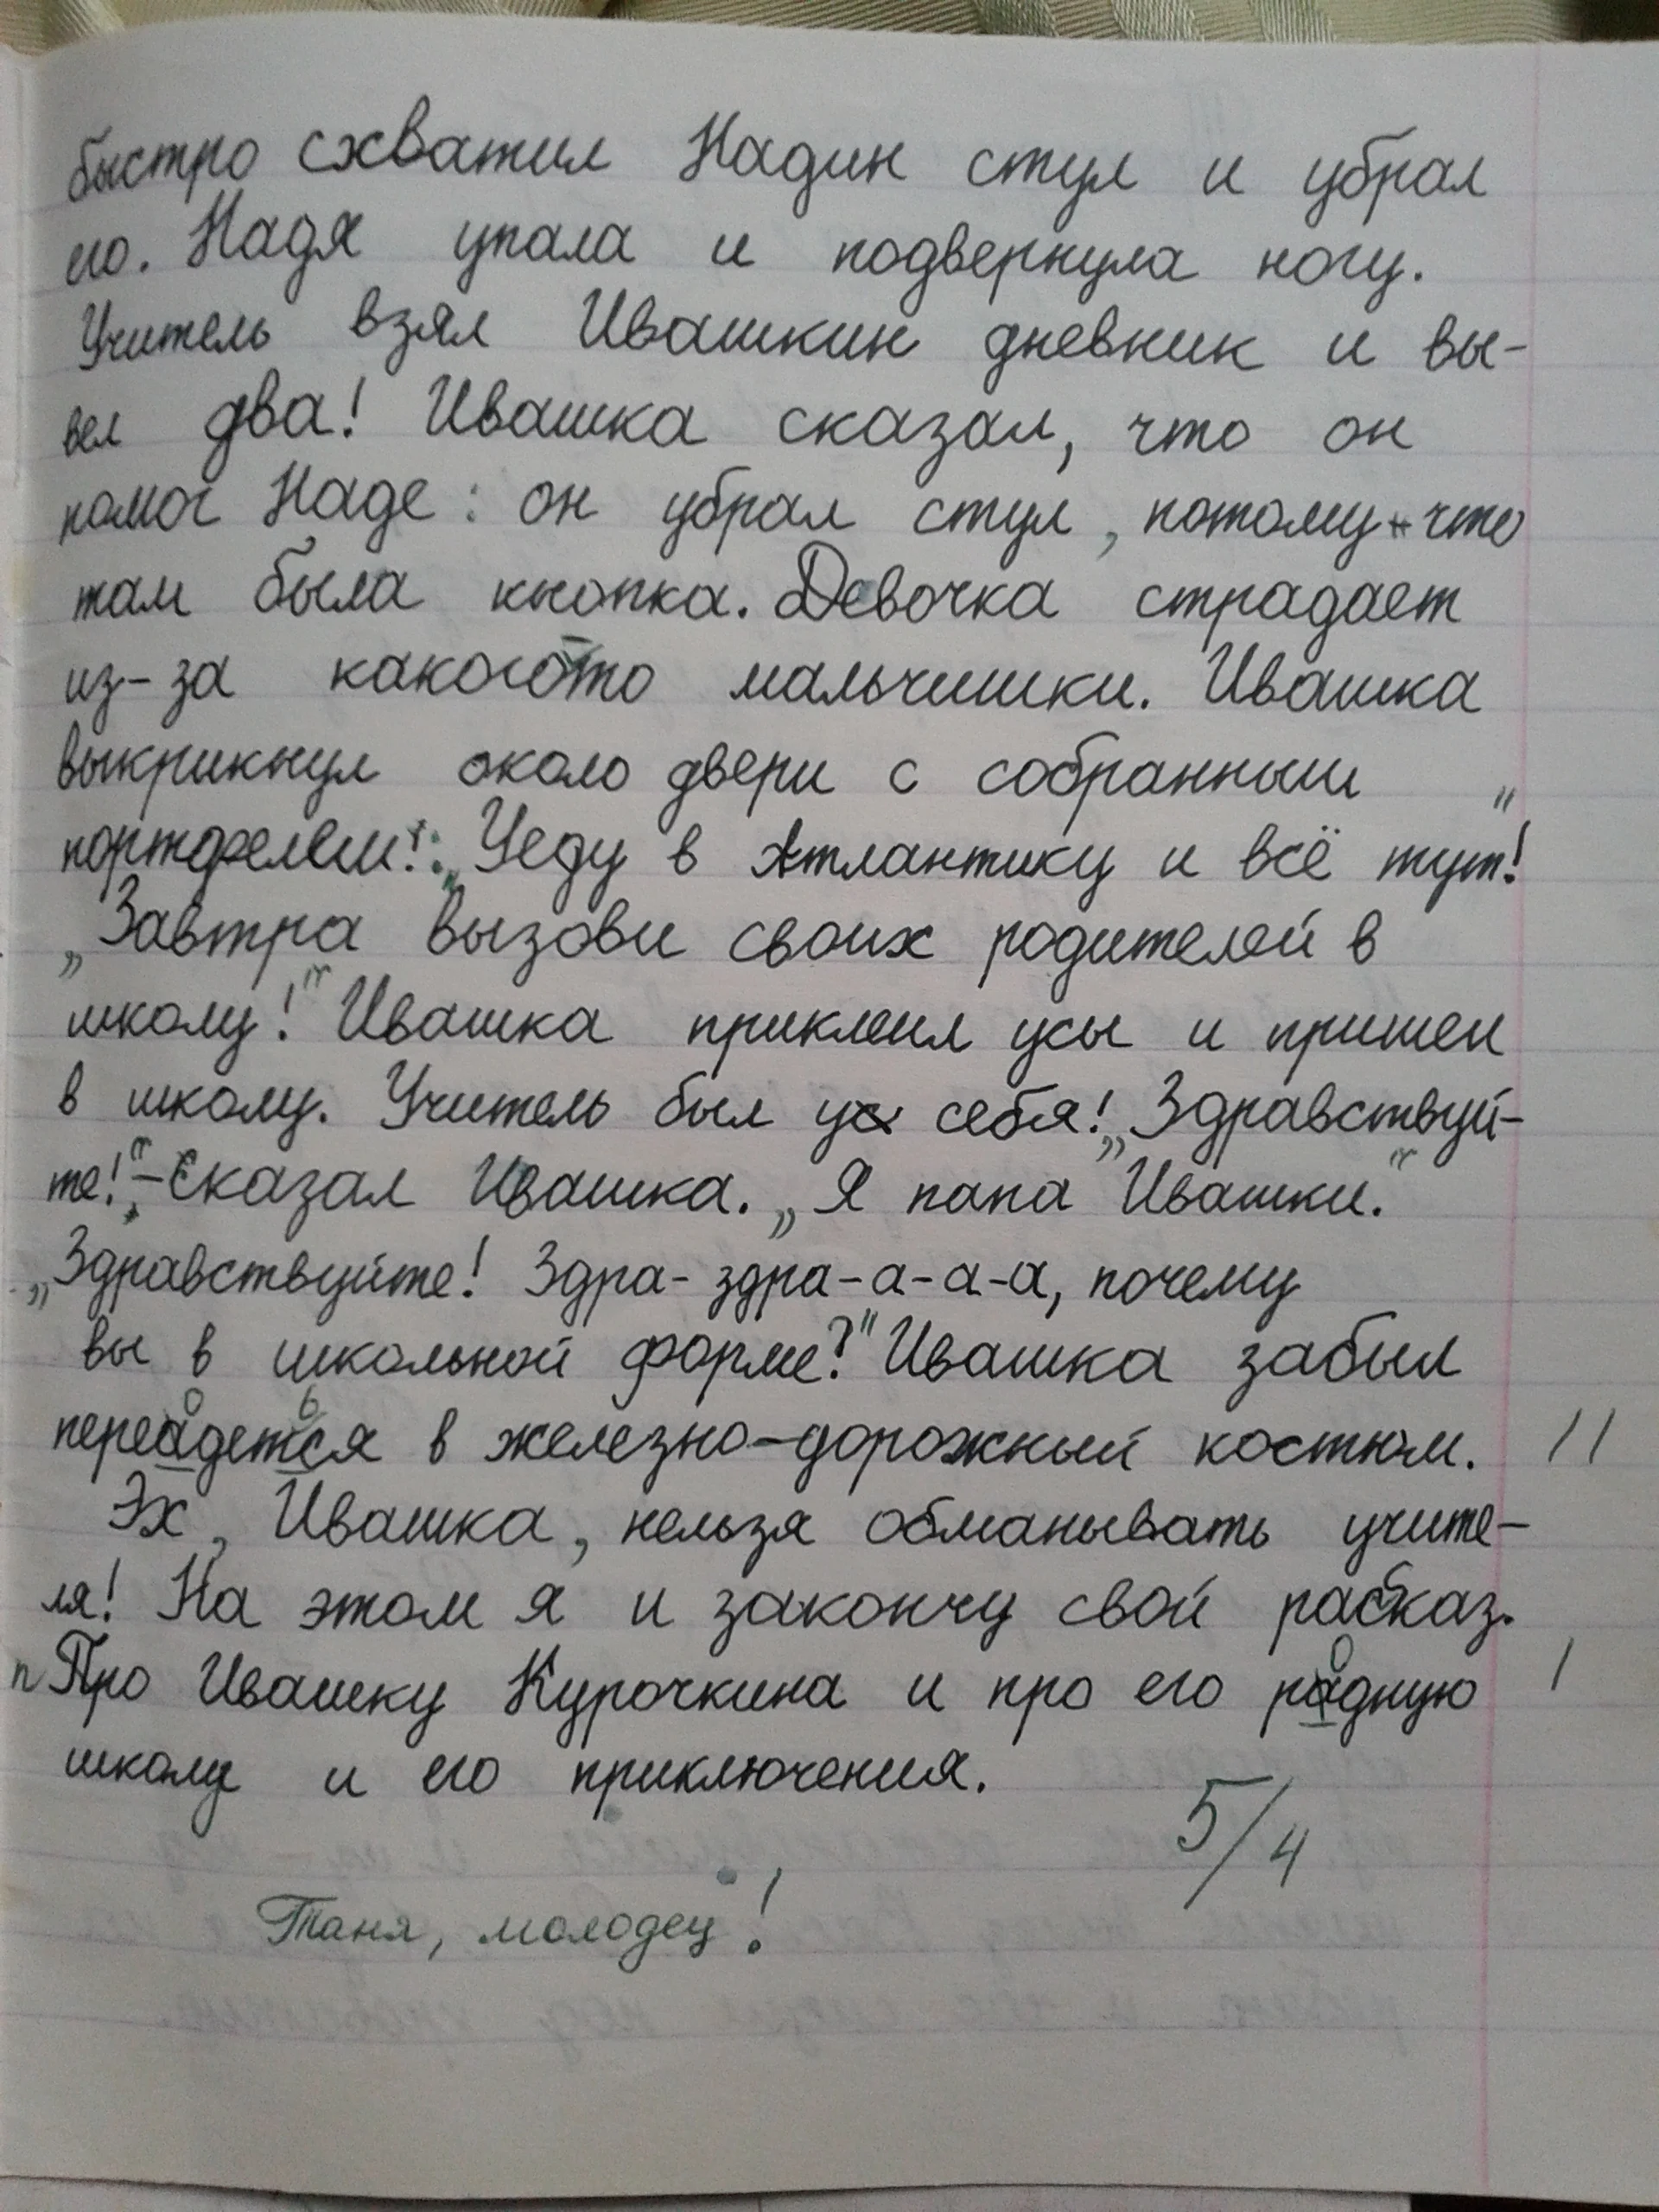 быстро схватил Надин стул и убрал
его. Надя упала и подвернула ногу.
Учитель взял Ивашкин дневник и вы-
вел два! Ивашка сказал, что он
помог Наде: он убрал стул, потому-что
там была кнопка. Девочка страдает
из-за какого-то мальчишки. Ивашка
выкрикнул около двери с собранным
портфелем: „Уеду в Атлантику и всё тут!"
„Завтра вызови своих родителей в
школу!" Ивашка приклеил усы и пришел
в школу. Учитель был у себя! „Здравствуй-
те!" - сказал Ивашка. „Я папа Ивашки."
„Здравствуйте! Здра- здра-а-а-а, почему
вы в школьной форме?" Ивашка забыл
переадется в железно-дорожный костюм.
о ь
||
Эх, Ивашка, нельзя обманывать учите-
ля! На этом я и закончу свой рассказ.
п Про Ивашку Курочкина и про его радную
о
|
школу и его приключения.
5/4
Таня, молодец!